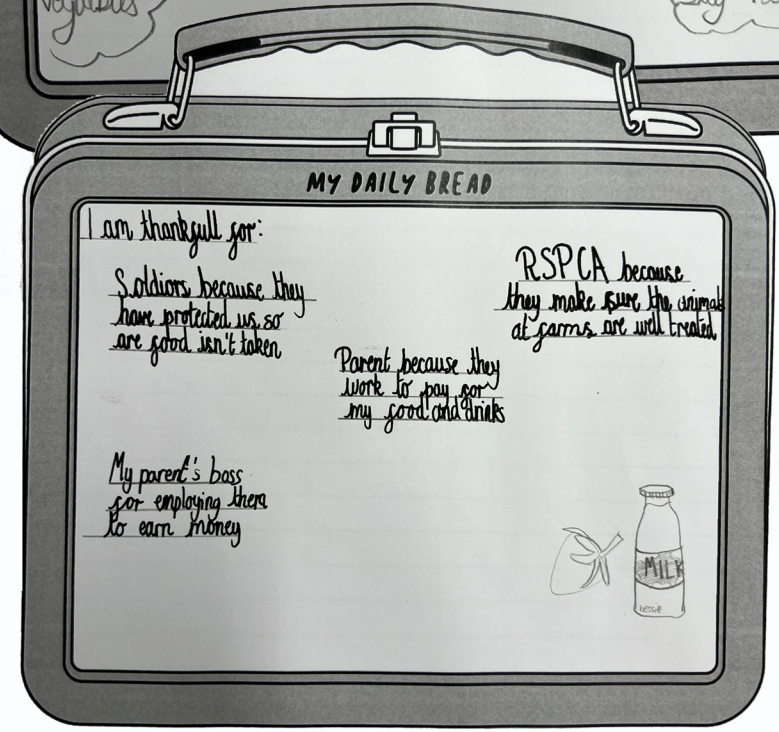 vegetables
MY DAILY BREAD
I am thankfull for:
Soldiors because they
have protected us so
are food isn't taken
RSPCA because
they make sure the animals
at farms are well treated
Parent because they
work to pay for
my food and drinks
My parent's boss
for employing them
to earn money
MILK
bessie